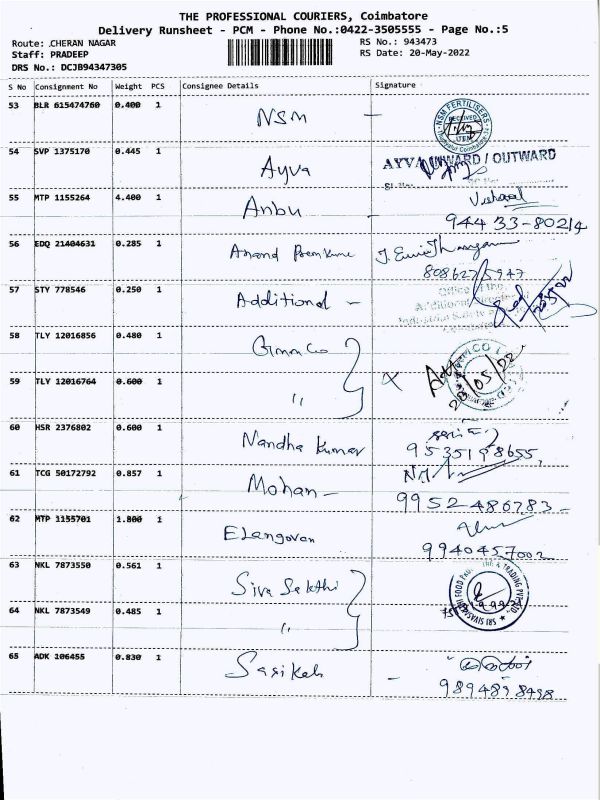 THE PROFESSIONAL COURIERS, Coimbatore
Delivery Runsheet - PCM - Phone No.:0422-3505555 - Page No.:5
Route: CHERAN NAGAR RS No.: 943473
Staff: PRADEEP RS Date: 20-May-2022
DRS No.: DCJB94347305
S No Consignment No Weight PCS Consignee Details Signature
53 BLR 615474760 0.400 1 NSM NSM FERTILISERS
54 SVP 1375170 0.445 1 Ayva AYVA INWARD / OUTWARD
55 MTP 1155264 4.400 1 Anbu
94433-80214
56 EDQ 21404631 0.285 1 Anand
8086275947
57 STY 778546 0.250 1 Additional - Office of the
58 TLY 12016856 0.480 1
59 TLY 12016764 0.600 1 "
60 HSR 2376802 0.600 1 Nandha Kumar
9535198655
61 TCG 50172792 0.857 1 Mohan -
9952486783-
62 MTP 1155701 1.800 1 Elangovan
9940457002
63 NKL 7873550 0.561 1 Siva Sakthi
64 NKL 7873549 0.485 1 "
65 ADK 106455 0.830 1 Sasikala
9894898498